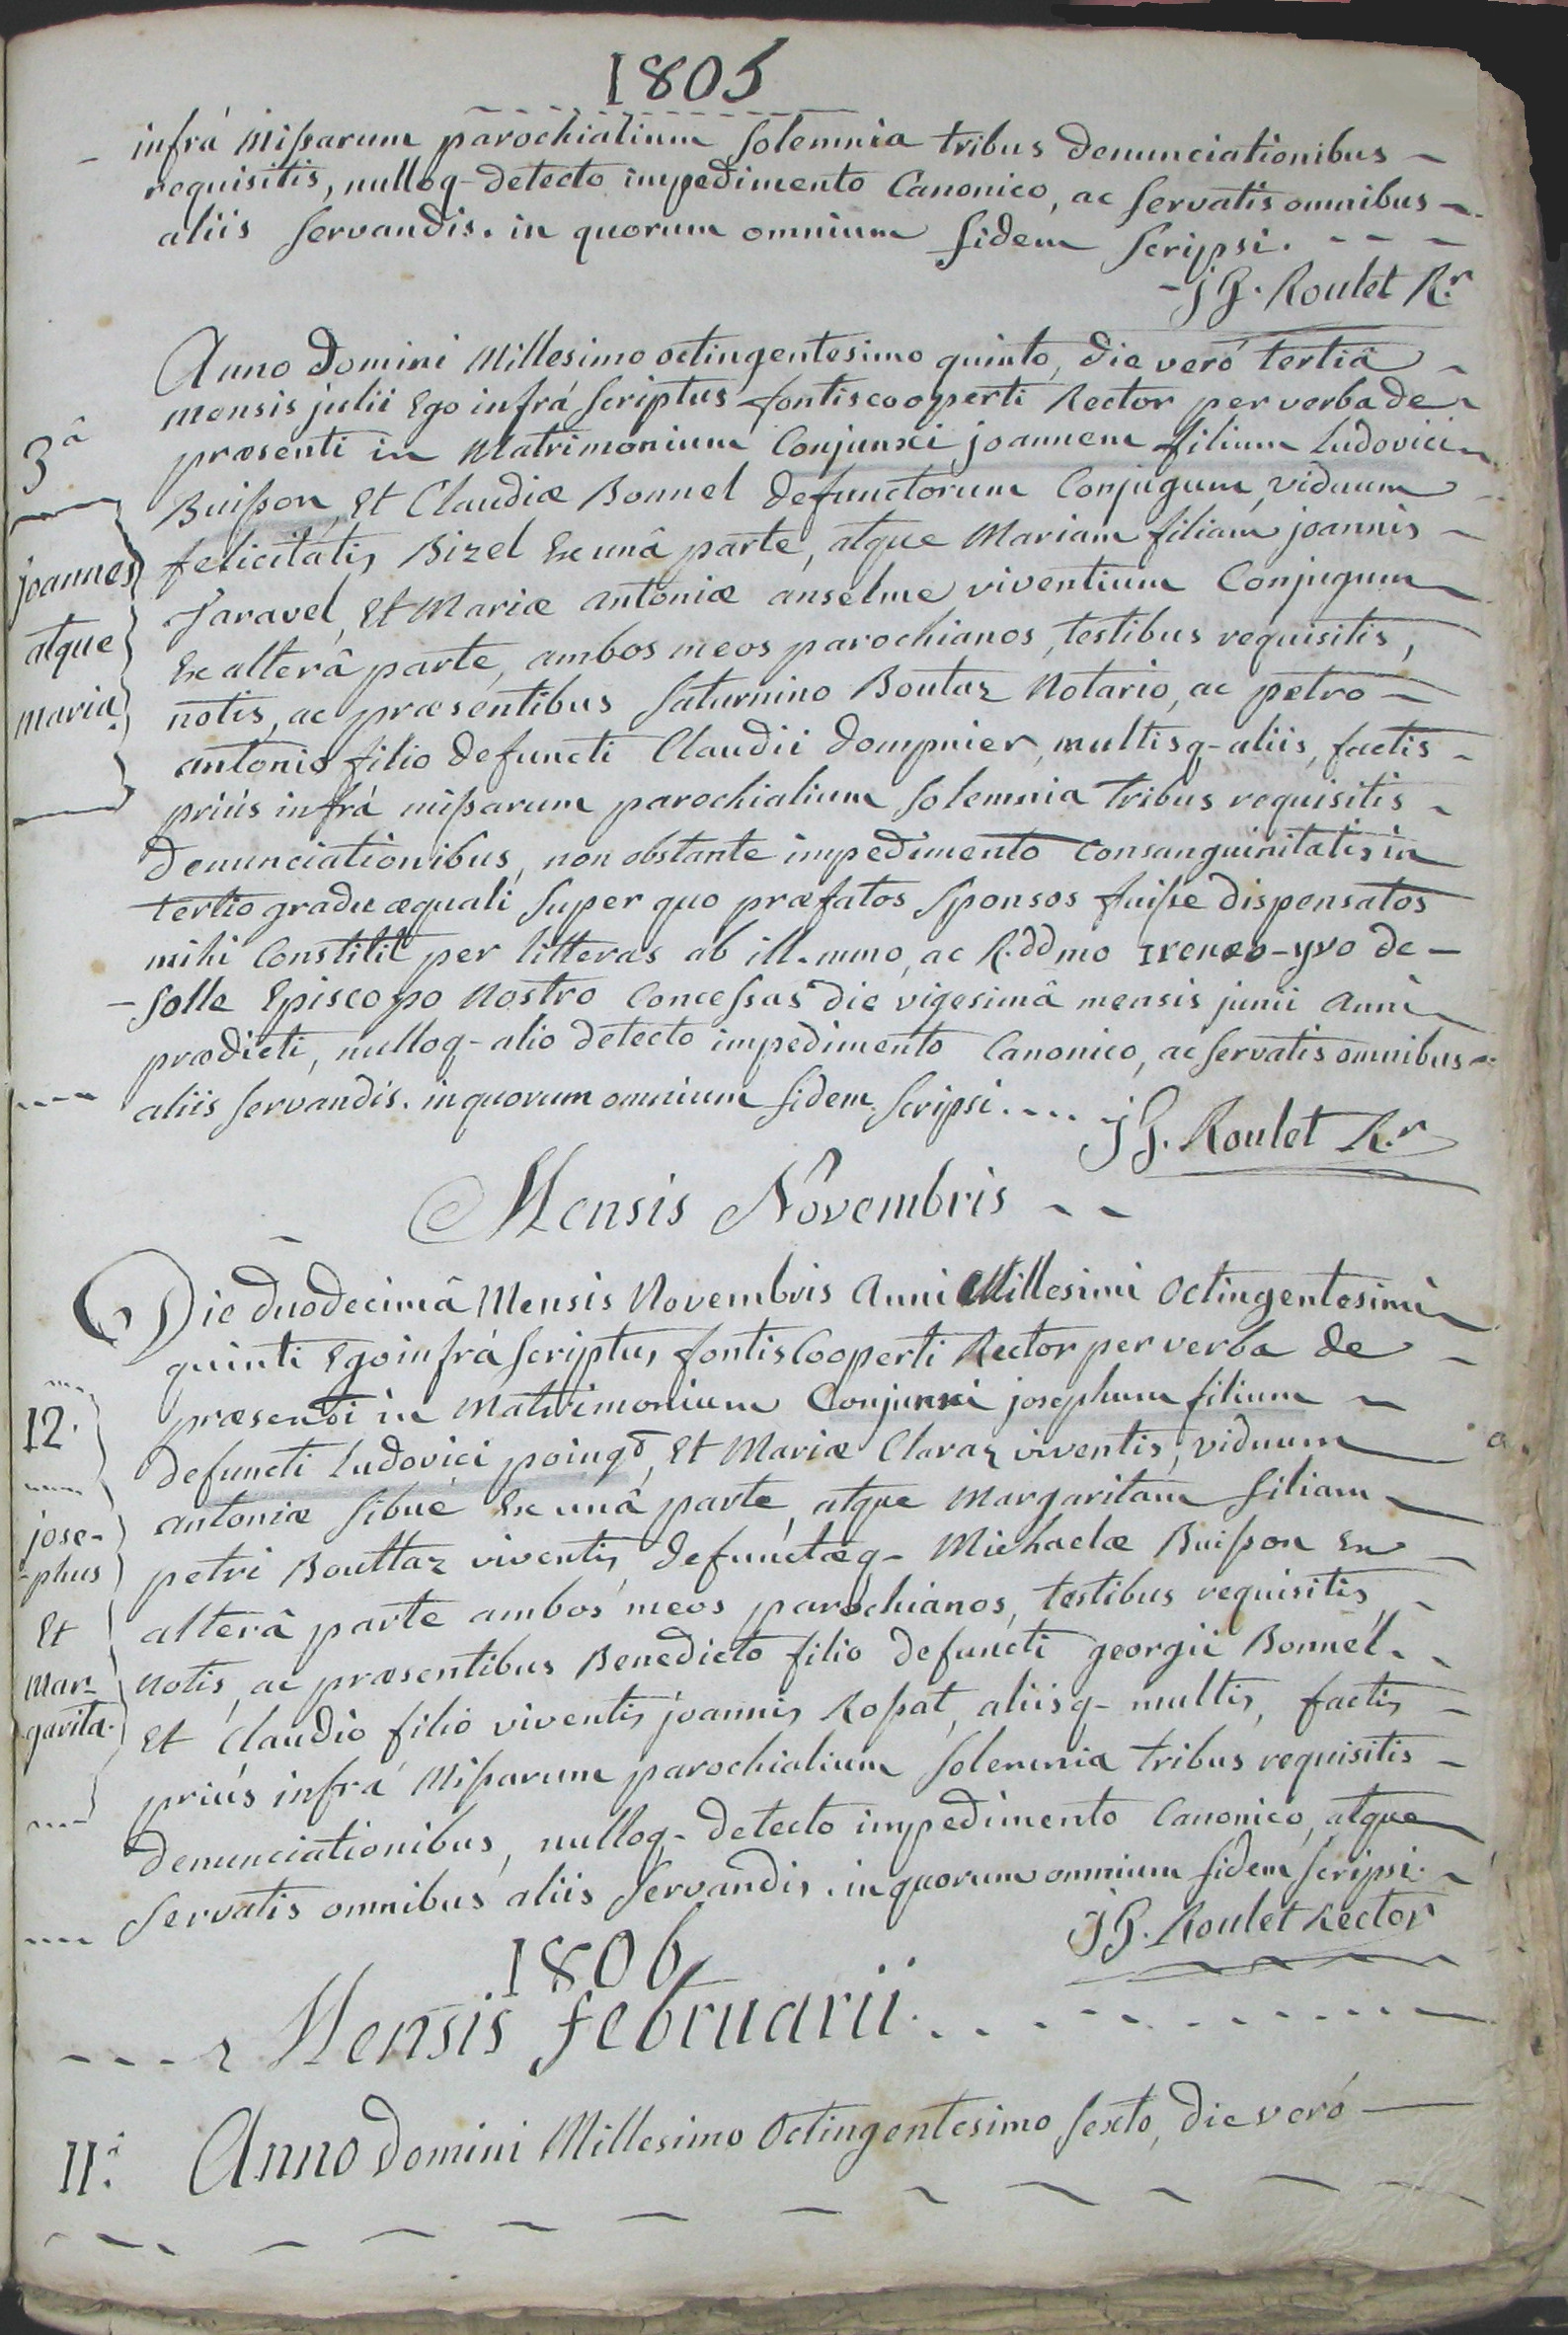 1805
infrá Missarum parochialium solemnia tribus denunciationibus
requisitis, nulloq- detecto impedimento Canonico, ac servatis omnibus
aliis servandis. in quorum omnium fidem scripsi.
JG. Roulet R.r
Anno Domini Millesimo octingentesimo quinto, die veró tertiâ
mensis julii Ego infrá scriptus fontiscooperti Rector per verba de
præsenti in Matrimonium Conjunxi joannem filium ludovici
Buisson, Et Claudiæ Bonnel defunctorum Conjugum, viduum
felicitatis Bizel Ex unâ parte, atque Mariam filiam joannis
Taravel, Et Mariæ antoniæ anselme viventium Conjugum
Ex alterâ parte, ambos meos parochianos, testibus requisitis,
notis, ac præsentibus Saturnino Boutaz Notario, ac petro
antonio filio defuncti Claudii Dompnier, multisq- aliis, factis
priús infrá missarum parochialium solemnia tribus requisitis
denunciationibus, non obstante impedimento Consanguinitatis in
tertio gradu æquali super quo præfatos sponsos fuisse dispensatos
mihi Constitit per litteras ab ill.mmo, ac R.ddmo Irenæo-yvo de
-solle Episcopo Nostro Concessas die vigesimâ mensis junii anni
prædicti, nulloq- alio detecto impedimento Canonico, ac servatis omnibus
aliis servandis. in quorum omnium fidem scripsi....
JG. Roulet R.r
3â
joannes
atque
maria.
Mensis Novembris
Die duodecimâ Mensis Novembris Anni Millesimi Octingentesimi
quinti Ego infrá scriptus fontisCooperti Rector per verba de
præsenti in Matrimonium Conjunxi josephum filium
defuncti ludovici poingt, Et Mariæ Claraz viventis, viduum
antoniæ sibué Ex unâ parte, atque Margaritam filiam
petri Bouttaz viventis, defunctæq- Michaelæ Buisson Ex
alterâ parte ambos meos parochianos, testibus requisitis,
notis, ac præsentibus Benedicto filio defuncti georgii Bonnel
Et Claudio filio viventis joannis Rossat, aliisq- multis, factis
priús infrá Missarum parochialium solemnia tribus requisitis
denunciationibus, nulloq- detecto impedimento Canonico, atque
servatis omnibus aliis servandis. in quorum omnium fidem scripsi.
JG. Roulet Rector
12.
jose-
-phus
Et
Mar-
garita.
1806
Mensis februarii
11.â Anno Domini Millesimo Octingentesimo sexto, die veró